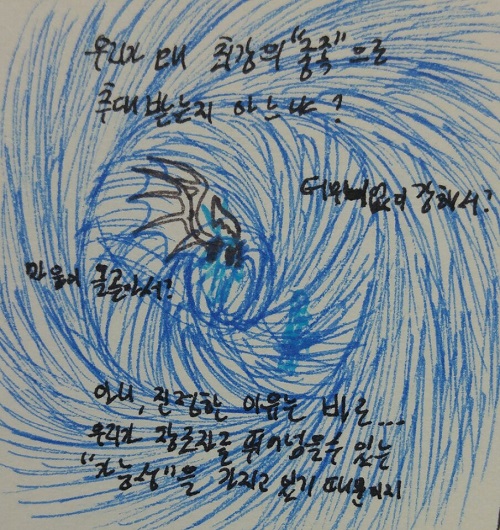 우리가 왜 최강의 "종족"으로
추대 받는지 아느냐?
터무니없이 강해서?
마음이 올곧아서?
아니, 진정한 이유는 바로...
우리가 창조자를 뛰어넘을수 있는
"가능성"을 가지고 있기 때문이지